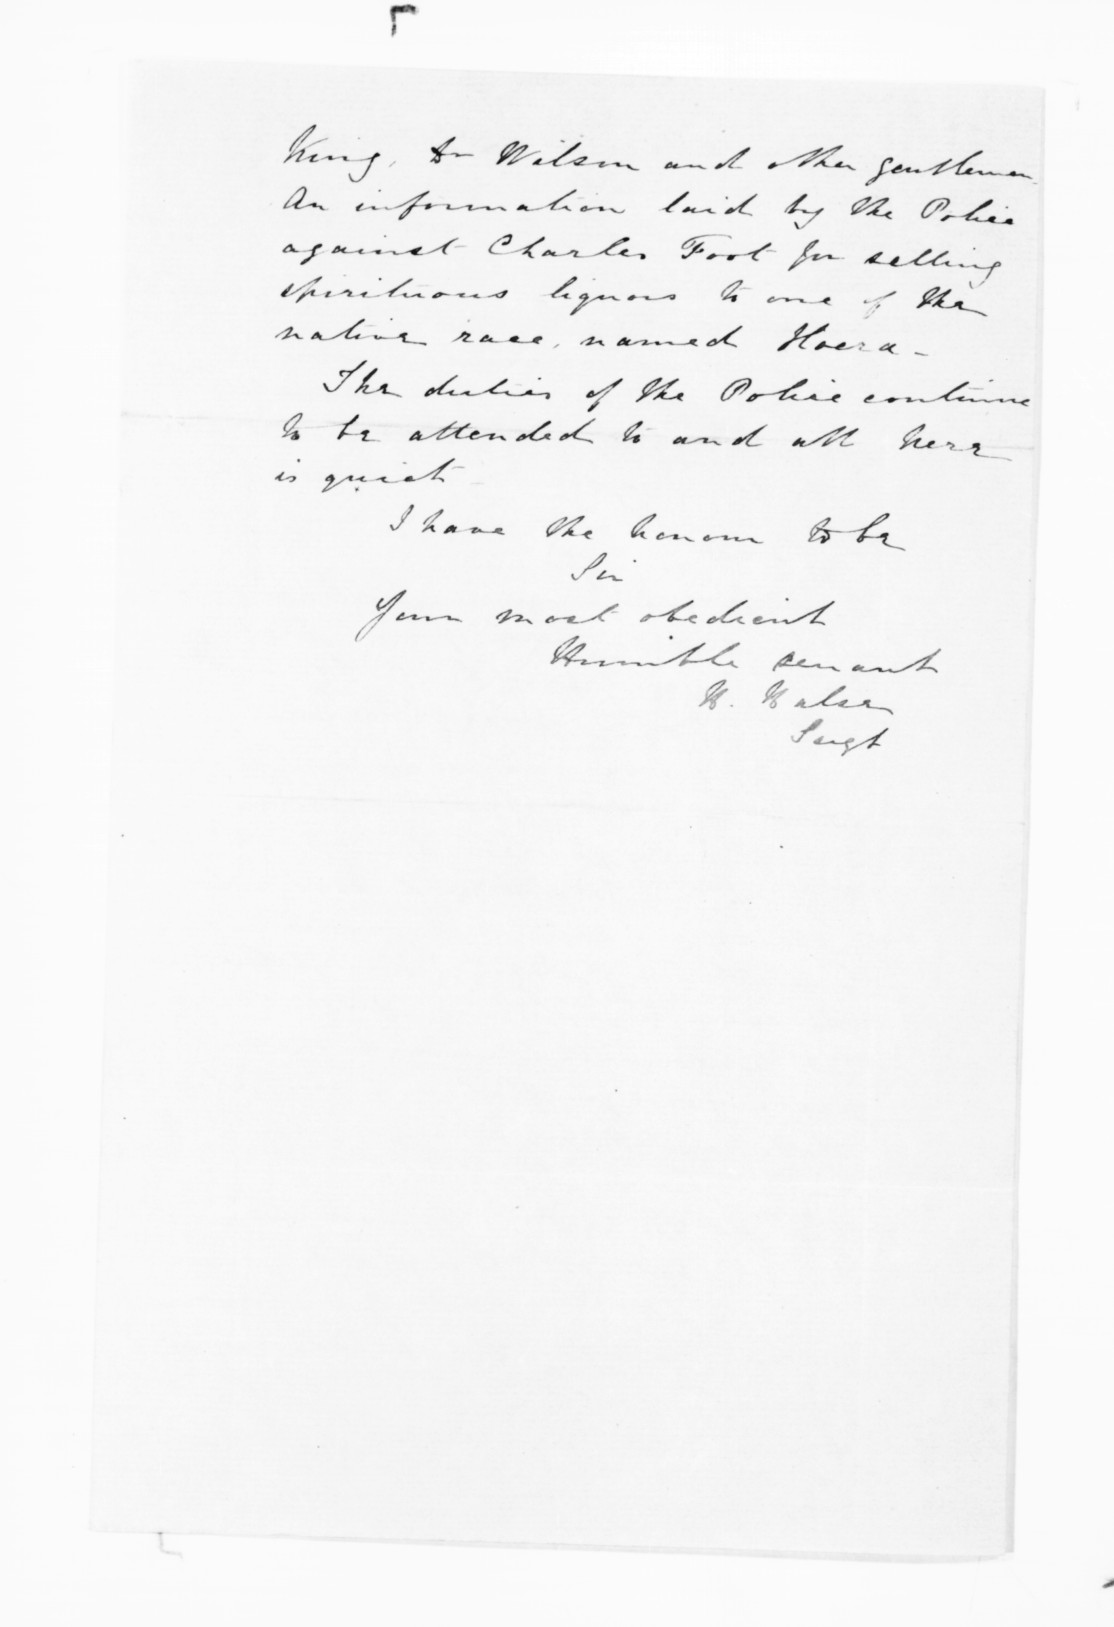 King, Dr Wilson and other gentlemen.
An information laid by the Police
against Charles Foot for selling
spirituous liquors to one of the
native race, named Hoera -
The duties of the Police continue
to be attended to and all here
is quiet
I have the honour to be
Sir
Your most obedient
Humble servant
W. Halse
Sergt